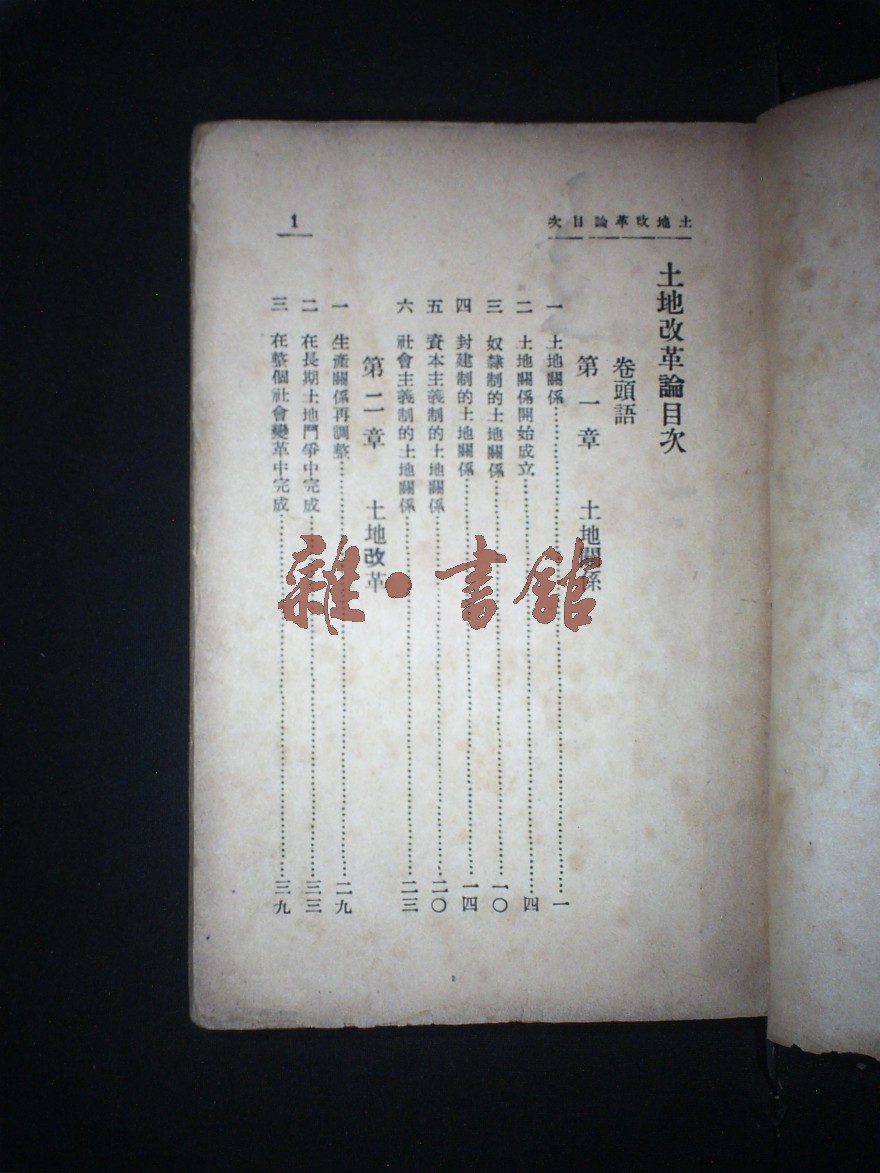 土地改革論目次
1
土地改革論目次
卷頭語
第一章 土地關係
一 土地關係……一
二 土地關係開始成立……四
三 奴隸制的土地關係……一〇
四 封建制的土地關係……一四
五 資本主義制的土地關係……二〇
六 社會主義制的土地關係……二三
第二章 土地改革
一 生產關係再調整……二九
二 在長期土地鬥爭中完成……三三
三 在整個社會變革中完成……三九
雜·書館